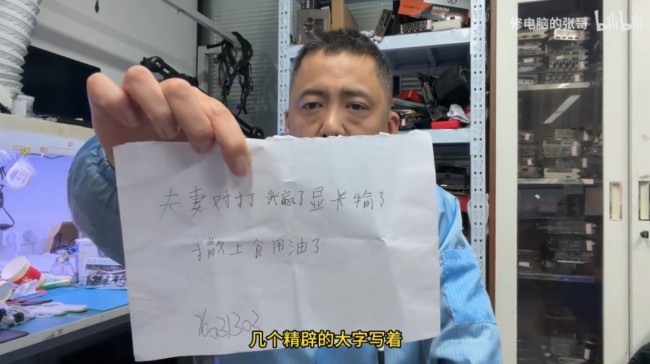 修电脑的张哥 bilibili
夫妻对打 我赢了显卡输了
撒上食用油了
几个精辟的大字写着